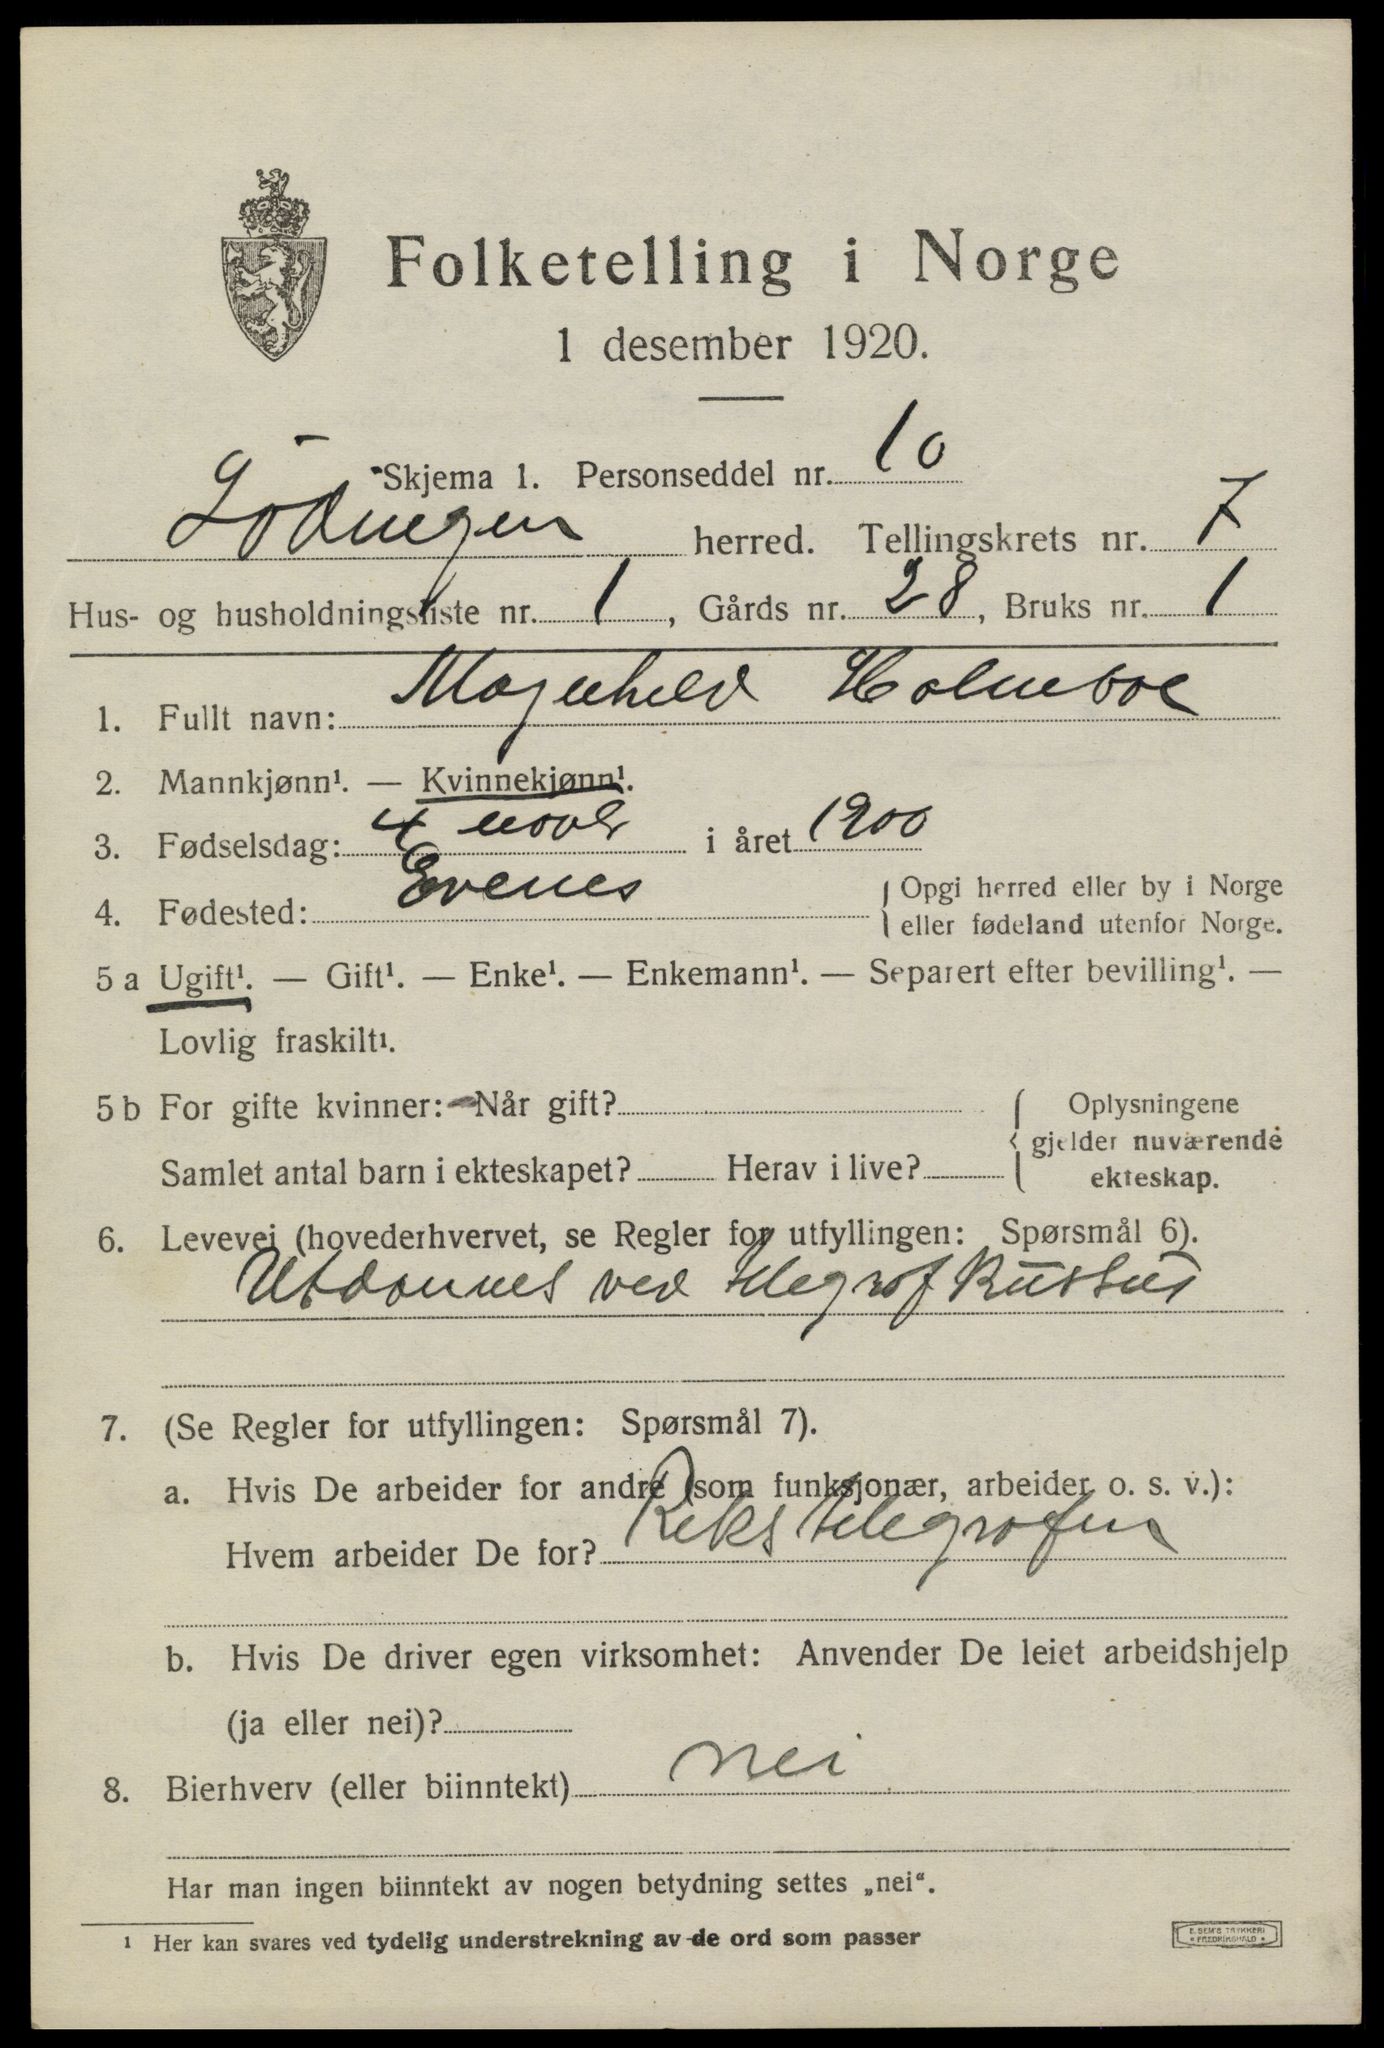 Folketelling i Norge
1 desember 1920.
Skjema 1. Personseddel nr. 10
Lödingen herred. Tellingskrets nr. 7
Hus- og husholdningsliste nr. 1, Gårds nr. 28, Bruks nr. 1
1. Fullt navn: Magnhild Holmboe
2. Mannkjønn¹. — Kvinnekjønn¹.
3. Fødselsdag: 4 novbr i året 1900
4. Fødested: Evenes { Opgi herred eller by i Norge
eller fødeland utenfor Norge.
5 a Ugift¹. — Gift¹. — Enke¹. — Enkemann¹. — Separert efter bevilling¹. —
Lovlig fraskilt¹.
5 b For gifte kvinner: Når gift? { Oplysningene
gjelder nuværende
Samlet antal barn i ekteskapet? Herav i live? ekteskap.
6. Levevei (hovederhvervet, se Regler for utfyllingen: Spørsmål 6).
Utdannes ved telegraf
7. (Se Regler for utfyllingen: Spørsmål 7).
a. Hvis De arbeider for andre (som funksjonær, arbeider o. s. v.):
Hvem arbeider De for? Rikstelegrafen
b. Hvis De driver egen virksomhet: Anvender De leiet arbeidshjelp
(ja eller nei)?
8. Bierhverv (eller biinntekt) nei
Har man ingen biinntekt av nogen betydning settes „nei“.
¹ Her kan svares ved tydelig understrekning av de ord som passer
E. SEM'S TRYKKERI
FREDRIKSHALD